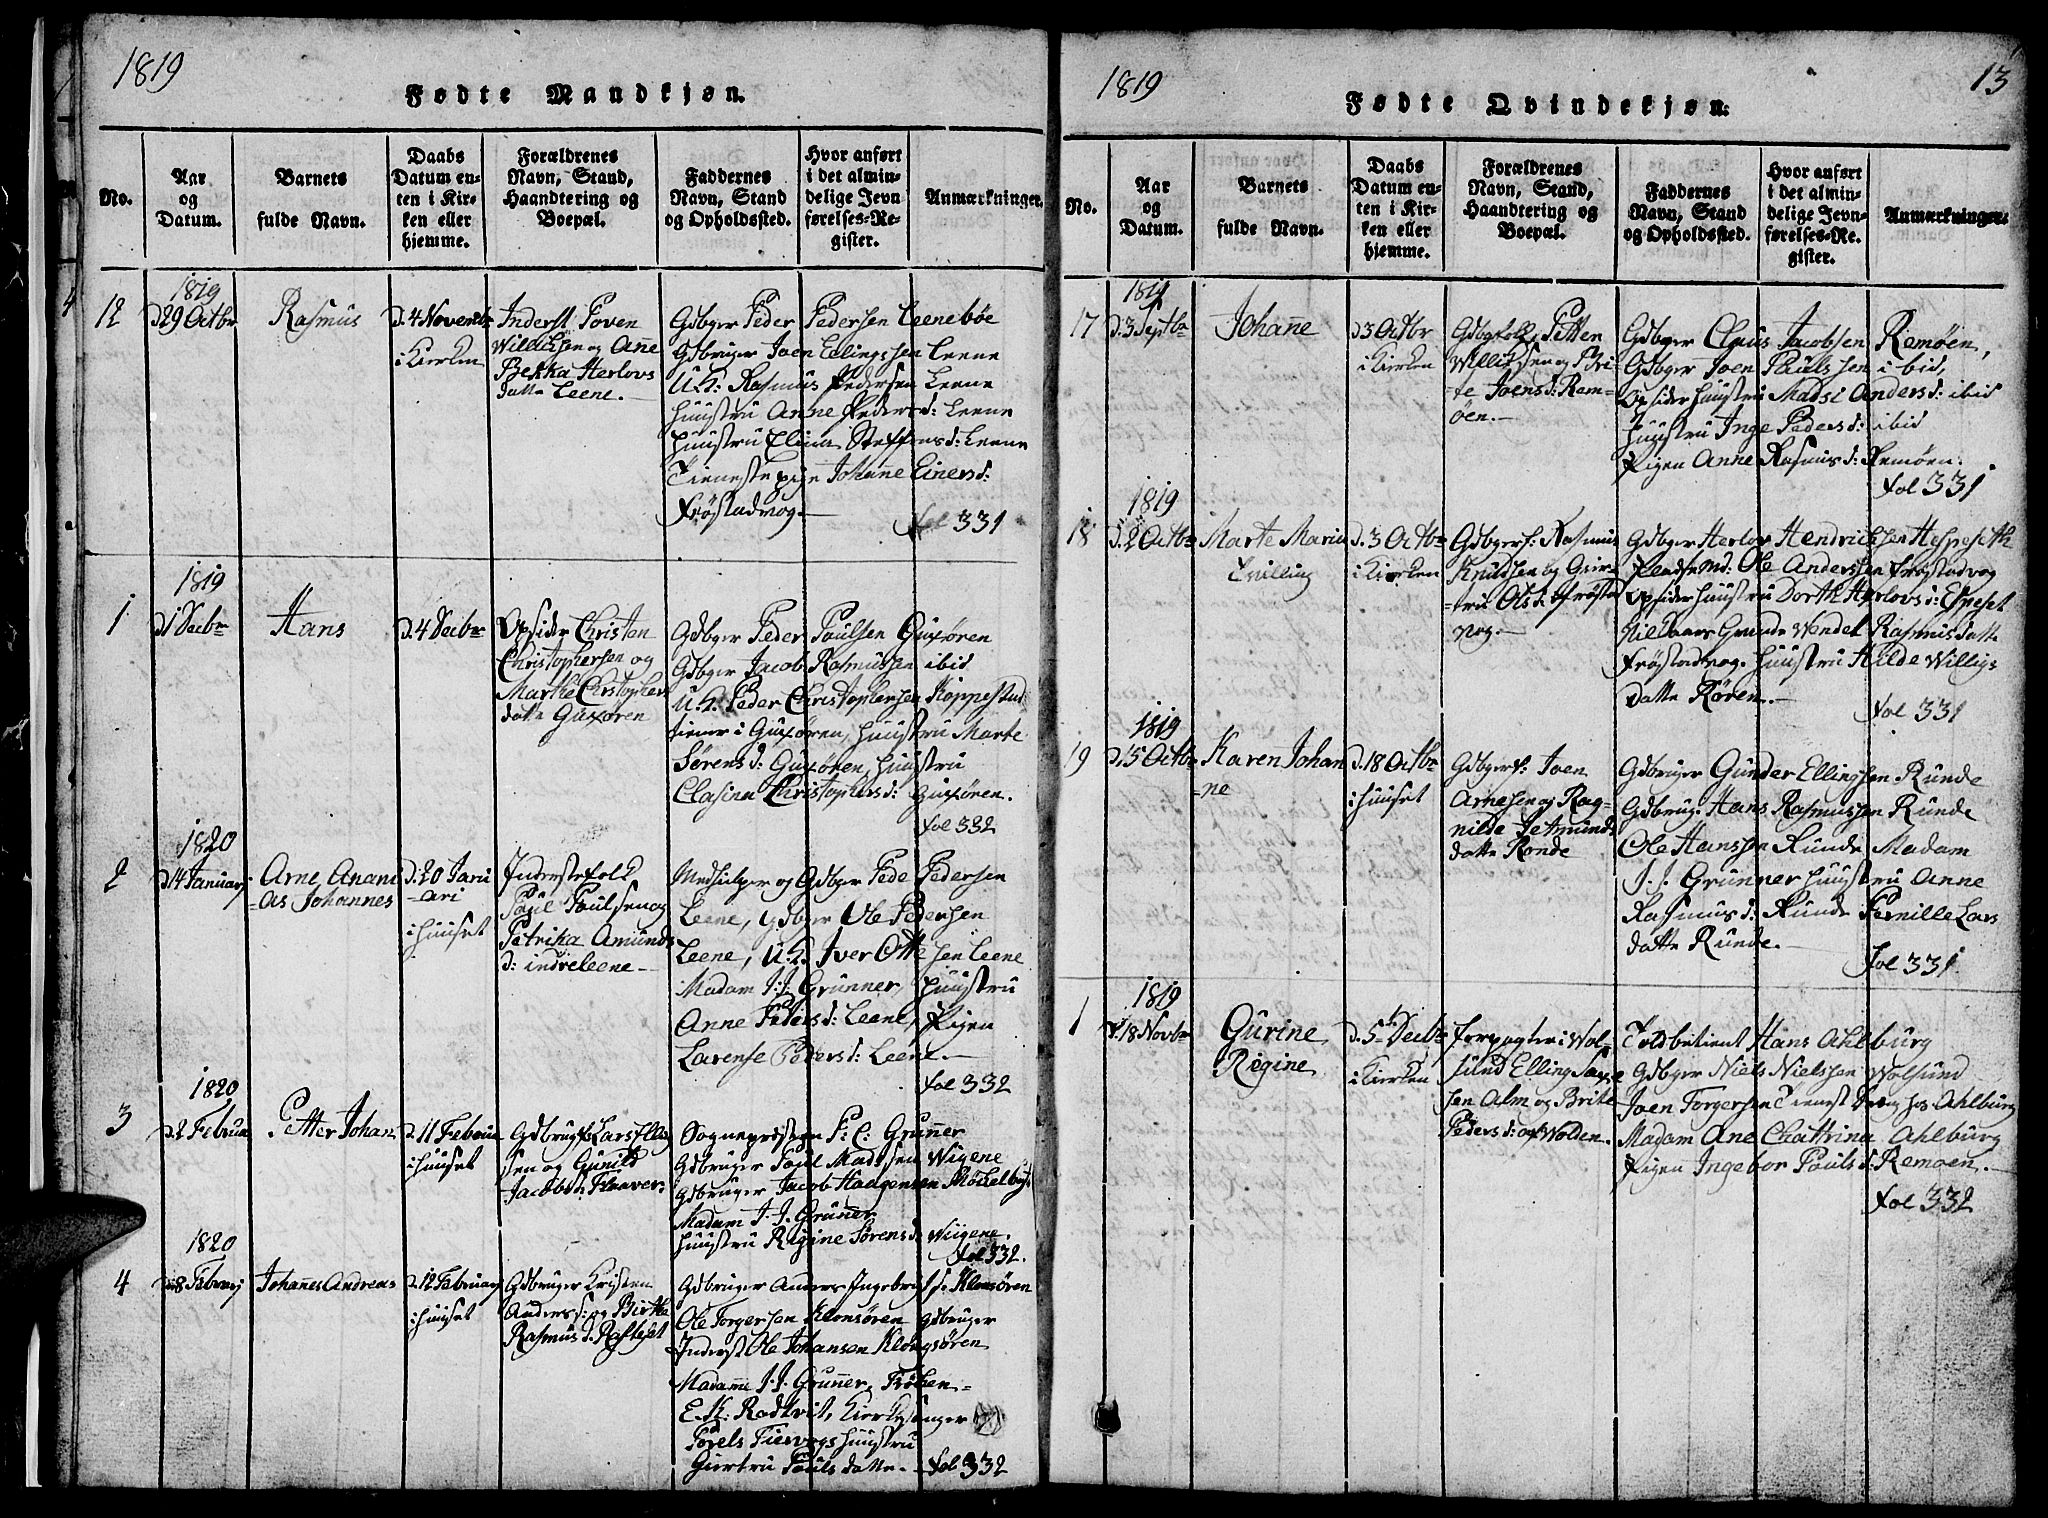 1819
Fødte Mandkjøn.
No.
Aar
og
Datum.
Barnets
fulde Navn.
Daabs
Datum en-
ten i Kir-
ken eller
hjemme.
Forældrenes
Navn, Stand,
Haandtering og
Boepæl.
Faddernes
Navn, Stand
og Opholdssted.
Hvor anført
i det almin-
delige Jevn
førelses-Re-
gister.
Anmærkninger.
12
1819
d29 Octbr
Rasmus
d. 4 Novembr
i Kierken
Inderst Poven
Willichsen og Anne
Bekka Herlovs
datte Leene.
Gdbger Peder Pedersen Leenebøe
Gdbruger Joen Ellingssen Leene
U.K. Rasmus Pedersen Leene
huustru Anne Peders d: Leene
huustru Elina Steffens d: Leene
Tieneste pige Johanne Einers d:
Frøstadvog.
fol 331
1
1819
d1 Decbr
Hans
d. 4 Decbr
Opsider Christen
Christophersen og
Marthe Christophers
datte Gurøren
Gdbger Peder Paulsen Gurøren
Gdbger Jacob Rasmussen ibid
U.K. Peder Christophersen Koppestad
tiener i Gurøren, huustru Marte
Sørens d: Gurøren, huustru
Clasina Christophers d: Gurøren.
fol 332
2
1820
d14 Januarj
Arne Anani
-as Johannes
d. 20 Janu
-ari
i huuset
Inderstefolk
Paul Paulsen og
Petrika Amunds
d: indreleene
Medhielper og Gdbger Pede Pedersen
Leene, Gdbger Ole Pedersen
Leene, U.K. Iver Otte sen Leene
Madam J.J. Grünner, huustru
Anne Peders d: Leene, Pigen
Larense Peders d: Leene.
fol 332
3
1820
d2 Februar
Petter Johan
d. 11 Februar
i huuset
Gdbrugf. Lars Elling
sen og Gunild
Jacobs d: Fleaver.
Sognepresten F: C: Grunner
Gdbruger Paul Madssen Wigene
Gdbruger Jacob Haagensen Møchelbust
Madam J. J. Grunner
huustru Rigine Sørens d: Wiigene.
fol 332.
4
1820
d8 Februarj
Johanes Andreas
d. 12 Februarj
i huuset
Gdbruger Kristen
Anders s: og Birthe
Rasmus d. Rafteset
Gdbruger Anders Ingebrigt s: Klonsøren
Ole Torgersen Klonsøren Gdbruger
Inderst Ole Johansen Klongsøren
Madame J.J. Grunner, Frøken
E. K. Rodtvit, Kierkesanger
huustru
Giertru Pouls datte. fol 332
1819
13
Fødte Qvindekjøn.
No.
Aar
og
Datum.
Barnets
fulde Navn.
Daabs
Datum en-
ten i Kir-
ken eller
hjemme.
Forældrenes
Navn, Stand,
Haandtering og
Boepæl.
Faddernes
Navn, Stand
og Opholdssted.
Hvor anført
i det almin-
delige Jevn-
førelses-Re-
gister.
Anmærkninger.
17
1819
d. 3 Septbr
Johanne
d3 Octbr
i Kierken
Gdbgfolk Petter
Willichsen og Bri
te Joens d: Rem-
øen.
Gdbger Claus Jacobsen Remøen,
Gdbger Joen Paulssen ibid,
Opsider huustru Madsi Anders d: ibid
huustru Inge Peders d: ibid
Pigen Anne Rasmus d: Remøen.
fol 331
18
1819
d. 2 Octbr
Marte Maria
Tvilling
d. 3 Octbr
i Kierken
Gdbger f: Rasmus
Knudsen og Geir-
-tru Ols d: Frøstad
vog.
Gdbger Herlov Hendrichsen Hesseseth
Ole Anderssen Frøstadvog
Opsider huustru Dorth Herlovs d: Espeset
Wendel Rasmusdatte
Frøstadvog. Huustru Hilde Willigs
datte Røren.
fol 331
19
1819
d. 15 Octbr
Karen Johan
-ne
d. 18 Octbr
i huuset
Gdbger f: Joen
Arnesen og Rag-
nilde Jetmunds
datte Ronde
Gdbruger Gunder Ellingsen Runde
Gdbrug. Hans Rasmussen Runde
Ole Hanssen Runde Madam
J. J. Grunner huustru Anne
Rasmus d: Runde Pernille Lars
datte Runde.
fol 331
1
1819
d. 18 Novbr
Gurine
Rigine
d. 5 Decbr
i Kierken
Forpagter i Vol-
sund Elling Saxe
sen Alm og Brite
Peders d: af Wolden.
Toldbetient Hans Ahlburg
Gdbger Niels Nielssen Wolsund
Joen Torgersen Tienest Dreng hos Ahlburg
Madam Ane Chattrina Ahlburg
Pigen Ingebor Pouls d: Remøen.
fol 332